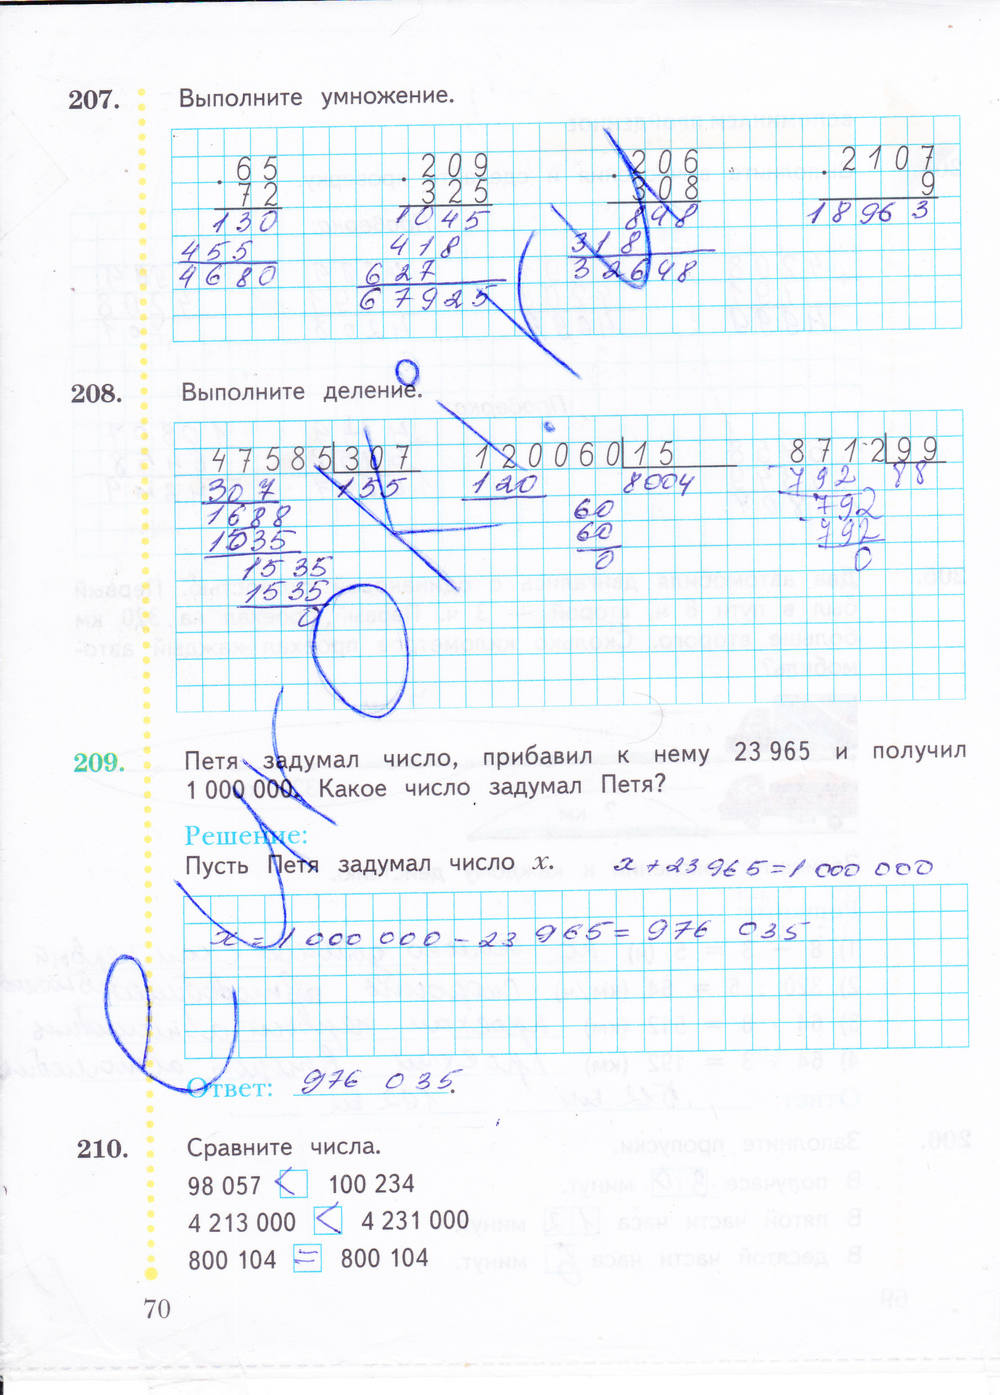 207. Выполните умножение.
65 209 206 2107
72 325 308 9
130 1045 848 18963
455 418 318
4680 627 32648
67925
208. Выполните деление.
47585 307 120060 15 8712 99
307 155 120 8004 792 88
1688 60 792
1535 60 792
1535 0 0
1535
0
209. Петя задумал число, прибавил к нему 23 965 и получил
1 000 000. Какое число задумал Петя?
Решение:
Пусть Петя задумал число x. x + 23 965 = 1 000 000
x = 1 000 000 – 23 965 = 976 035
Ответ: 976 035.
210. Сравните числа.
98 057 < 100 234
4 213 000 < 4 231 000
800 104 = 800 104
70